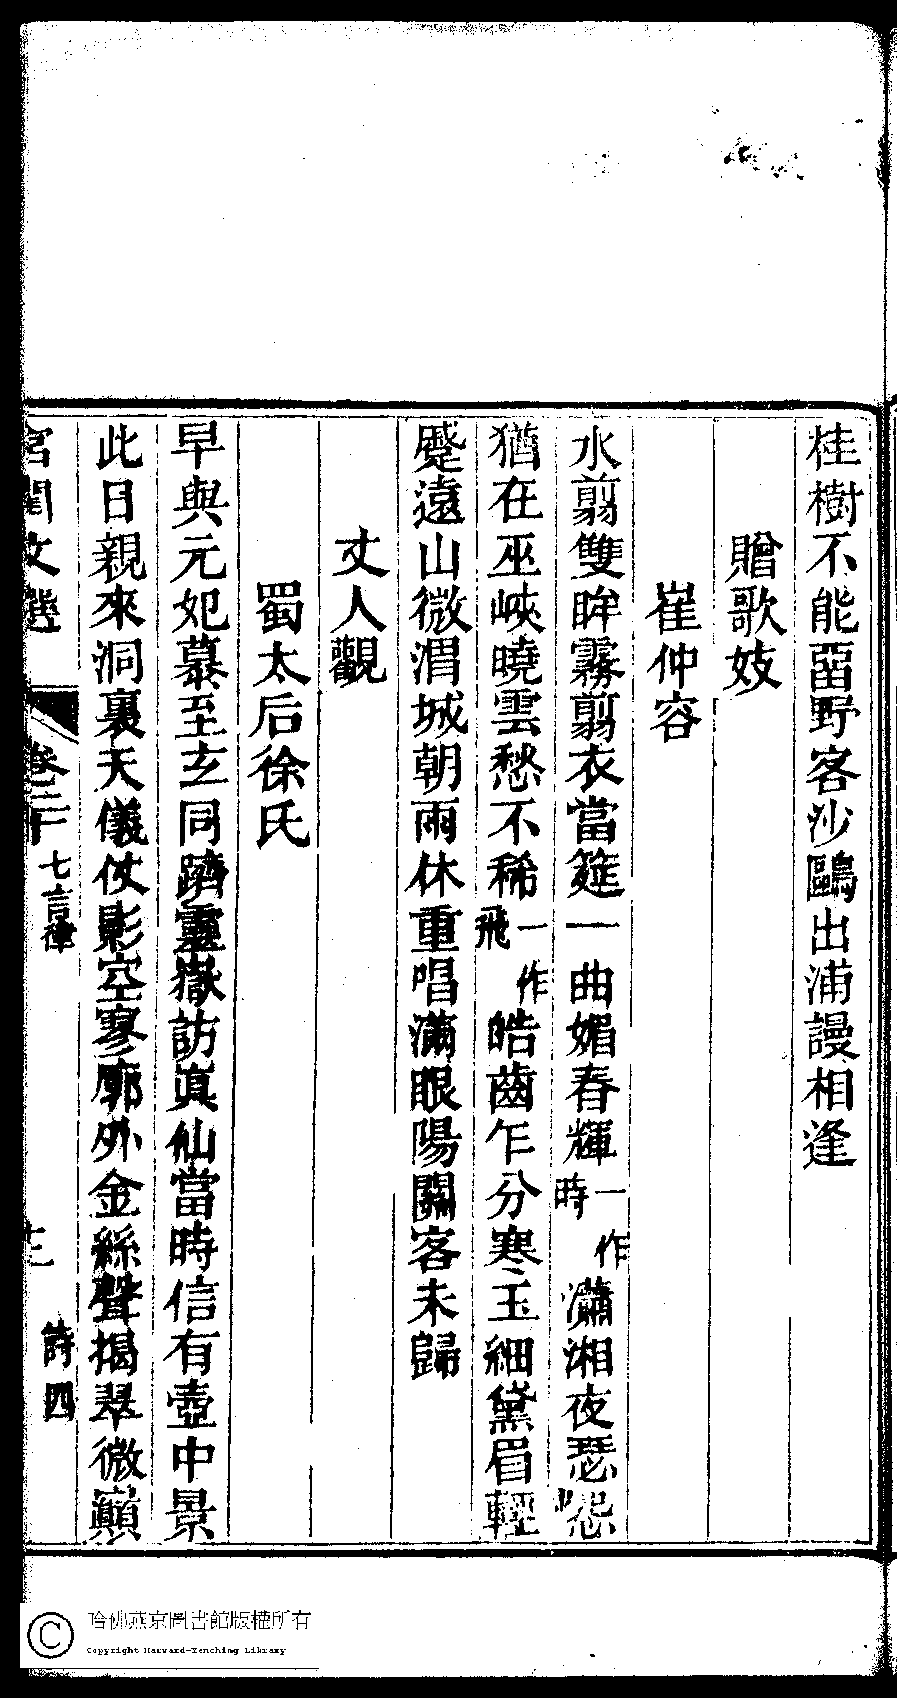 桂樹不能畱野客沙鷗出浦謾相逢
贈歌妓
崔仲容
水翦雙眸霧翦衣當筵一曲媚春輝一作時瀟湘夜瑟怨
猶在巫峽曉雲愁不稀一作飛皓齒乍分寒玉細黛眉輕
蹙遠山微渭城朝雨休重唱滿眼陽關客未歸
丈人觀
蜀太后徐氏
早與元妃慕至玄同躋靈嶽訪眞仙當時信有壺中景
此日親來洞裏天儀仗影空寥廓外金絲聲揭翠微巔
宮閨文選 卷二十 七言律 十二 詩四
哈佛燕京圖書館版權所有
Copyright Harvard-Yenching Library